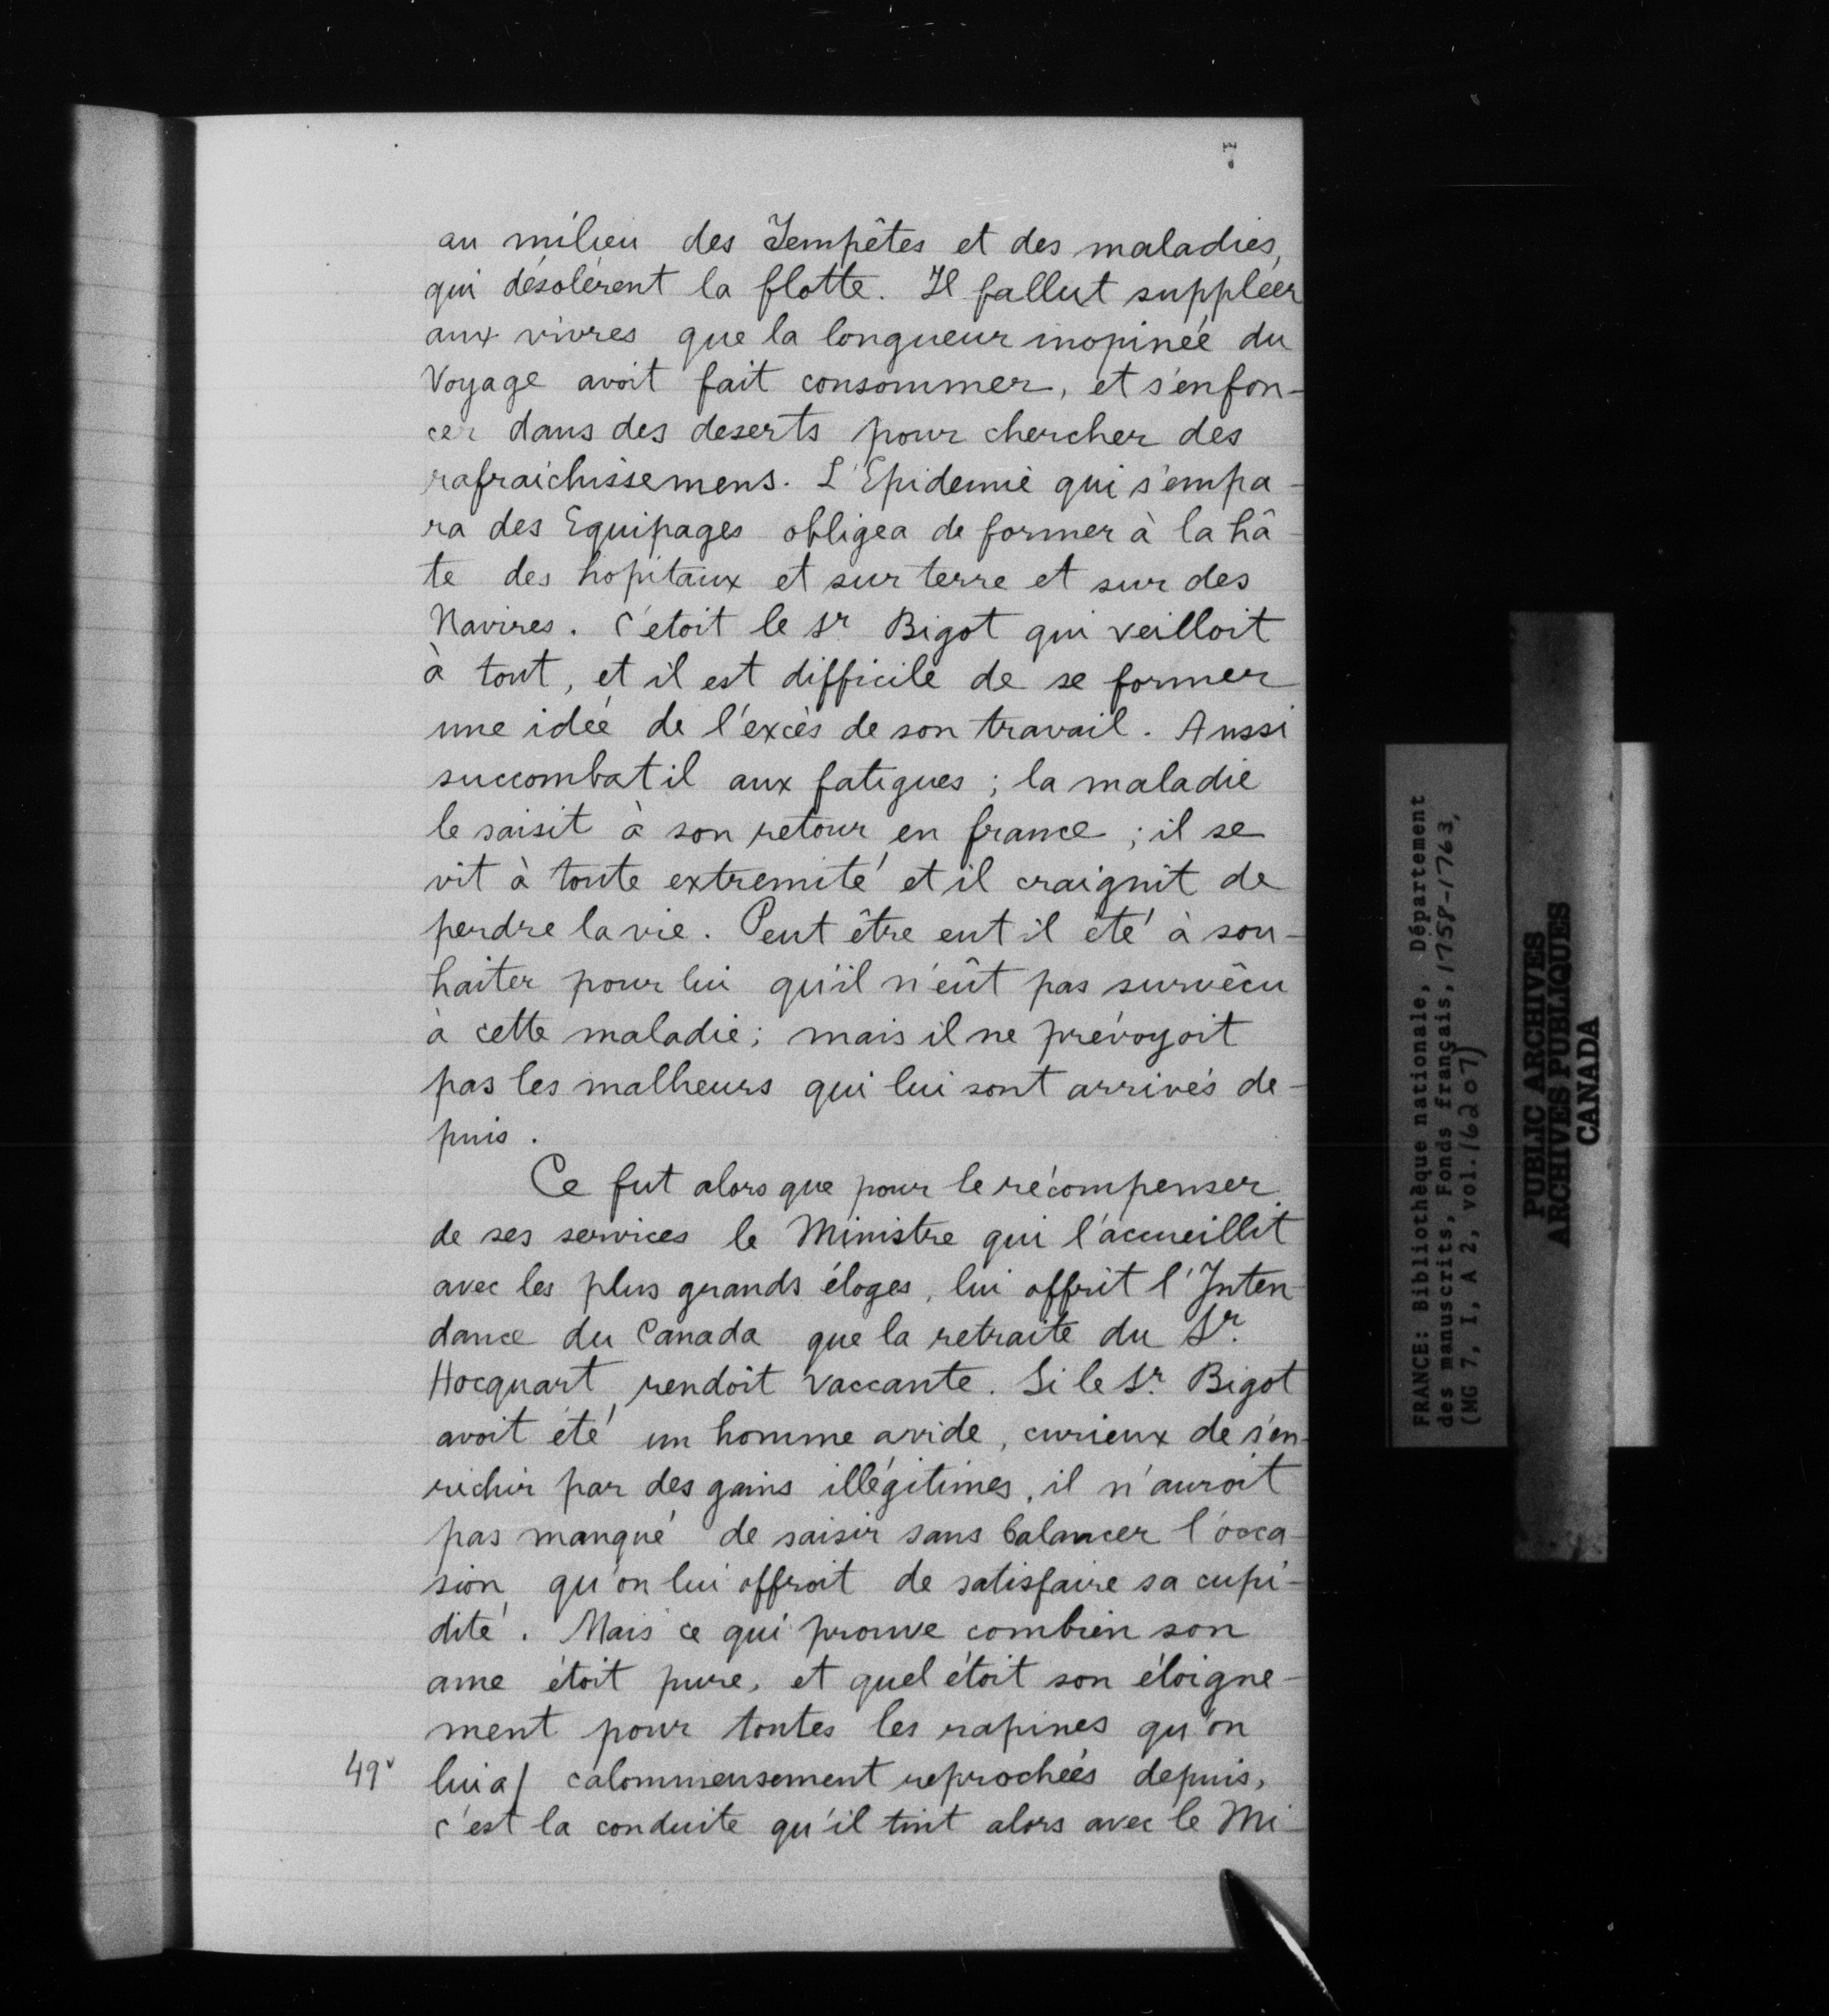 7
au milieu des Tempêtes et des maladies,
qui désolérent la flotte. Il fallut suppléer
aux vivres que la longueur inopinée du
Voyage avoit fait consommer, et s'enfon-
cer dans des deserts pour chercher des
rafraichissemens. L'Epidemie qui s'empa-
ra des Equipages obligea de former à la hâ-
te des hopitaux et sur terre et sur des
Navires. C'etoit le Sr Bigot qui veilloit
à tout, et il est difficile de se former
une idée de l'excès de son travail. Aussi
succombat il aux fatigues ; la maladie
le saisit à son retour en france ; il se
vit à toute extremité et il craignit de
perdre la vie. Peut être eut il été à sou-
haiter pour lui qu'il n'eût pas survêcu
à cette maladie ; mais il ne prévoyoit
pas les malheurs qui lui sont arrivés de-
puis.
Ce fut alors que pour le récompenser
de ses services le Ministre qui l'accueillit
avec les plus grands éloges, lui offrit l'Inten-
dance du Canada que la retraite du Sr.
Hocquart rendoit vaccante. Si le Sr. Bigot
avoit été un homme avide, curieux de s'en-
richir par des gains illégitimes, il n'auroit
pas manqué de saisir sans balancer l'occa-
sion qu'on lui offroit de satisfaire sa cupi-
dité. Mais ce qui prouve combien son
ame étoit pure, et quel étoit son éloigne-
ment pour toutes les rapines qu'on
49v lui a/ calomnieusement reprochées depuis,
c'est la conduite qu'il tint alors avec le Mi-
FRANCE: Bibliothèque nationale, Département
des manuscrits, Fonds français, 1758-1763,
(MG 7, I, A 2, vol. 16207)
PUBLIC ARCHIVES
ARCHIVES PUBLIQUES
CANADA